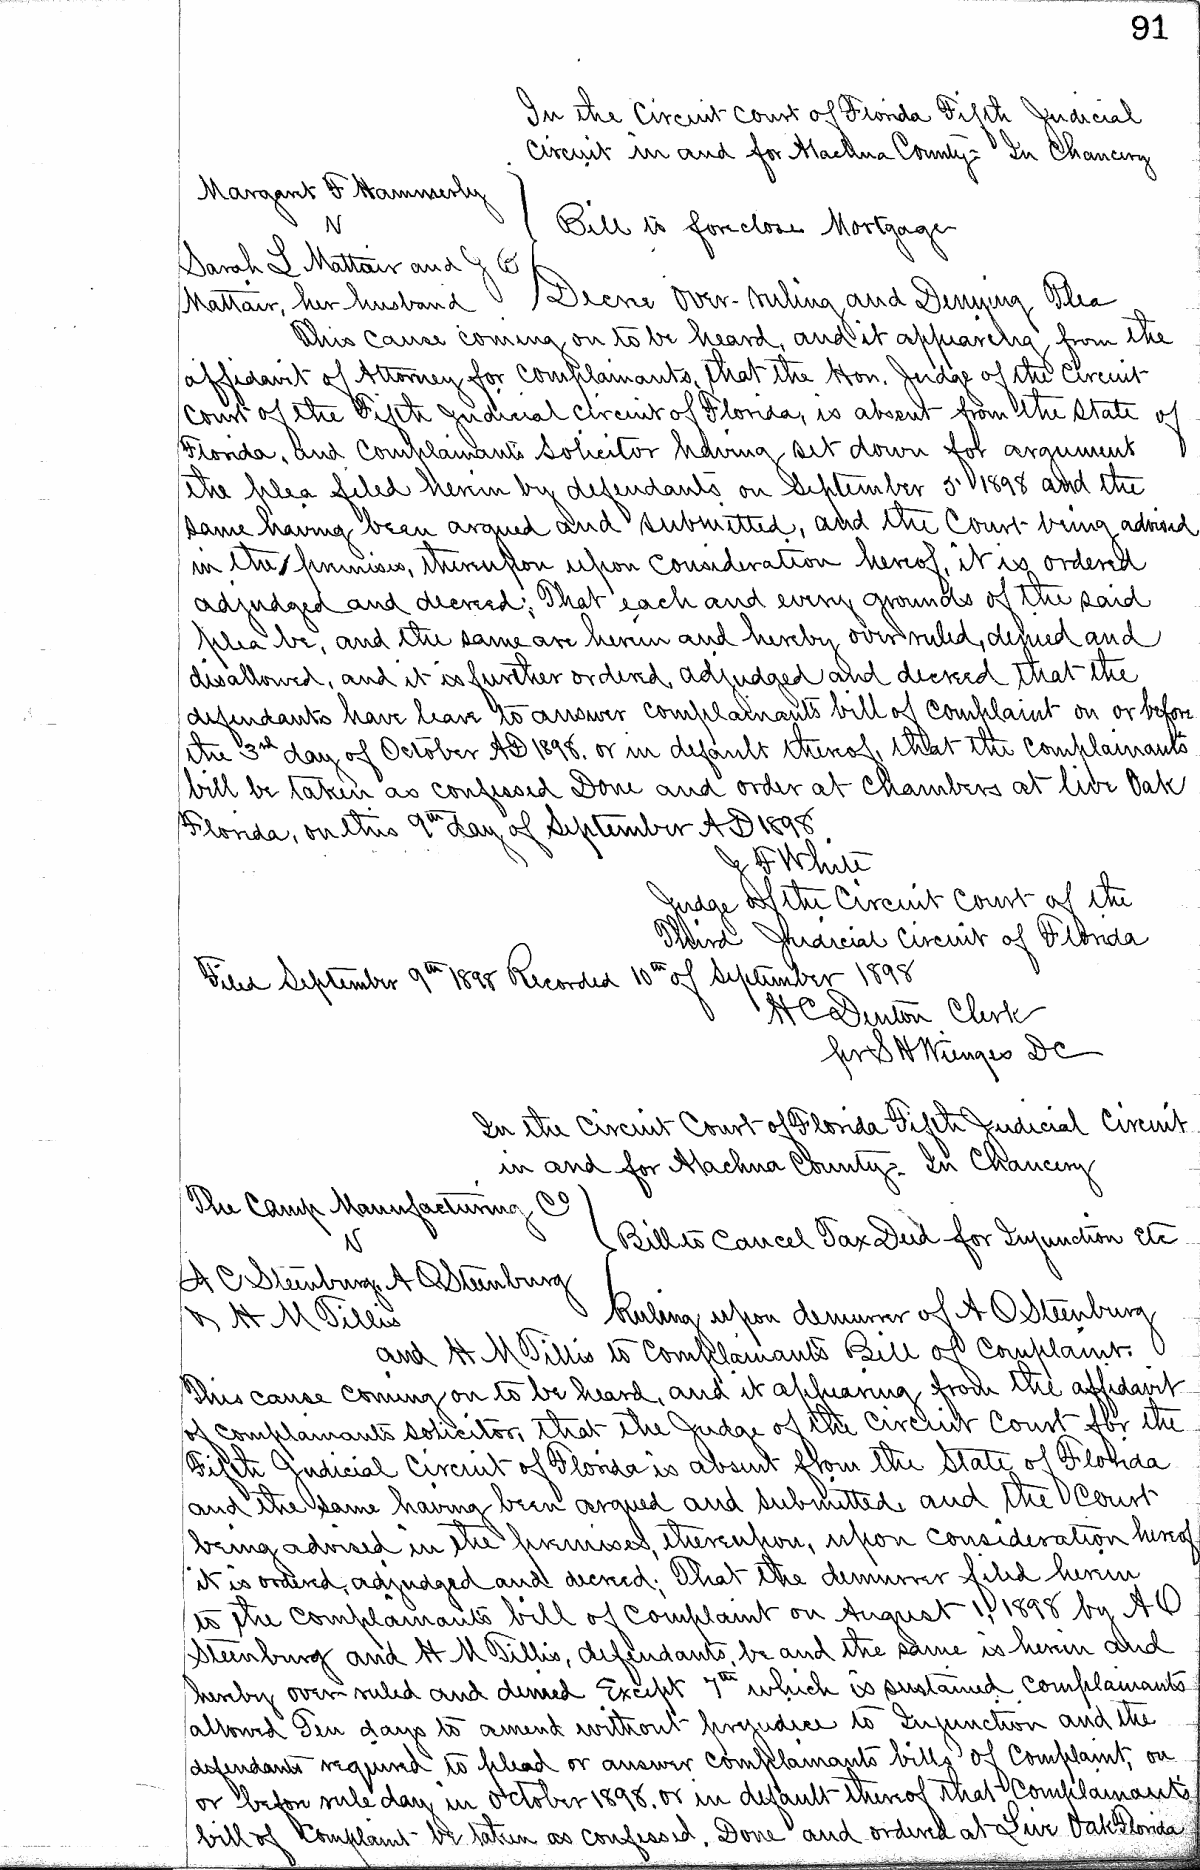 91
In the Circuit Court of Florida Fifth Judicial
Circuit in and for Alachua County = In Chancery
Margaret F Hammerly
V
Bill to foreclose Mortgage
Sarah L Mattair and
Mattair, her husband
Decree Over-ruling and Denying Plea
This cause coming on to be heard, and it appearing from the
affidavit of Attorney for Complainants, that the Hon. Judge of the Circuit
Court of the Fifth Judicial Circuit of Florida, is absent from the State of
Florida, and Complainants Solicitor having set down for argument
the plea filed herein by defendants on September 5th 1898 and the
same having been argued and submitted, and the Court being advised
in the premises, thereupon upon consideration hereof, it is ordered
adjudged and decreed; That each and every grounds of the said
plea be, and the same are herein and hereby over ruled, denied and
disallowed, and it is further ordered, adjudged and decreed that the
defendants have leave to answer complainants bill of complaint on or before
the 3rd day of October AD 1898. or in default thereof, that the complainants
bill be taken as confessed Done and order at Chambers at live Oak
Florida, on this 9th day of September AD 1898
J F White
Judge of the Circuit Court of the
Third Judicial Circuit of Florida
Filed September 9th 1898 Recorded 10th of September 1898
H C Denton Clerk
per S H Wienges DC
In the Circuit Court of Florida Fifth Judicial Circuit
in and for Alachua County = In Chancery
The Camp Manufacturing Co
V
Bill to Cancel Tax Deed for Injunction etc
A C Steenburg, A O Steenburg
& H M Tillis
Ruling upon demurrer of A O Steenburg
and H M Tillis to Complainants Bill of Complaint.
This cause coming on to be heard, and it appearing from the affidavit
of complainants solicitor, that the Judge of the Circuit Court for the
Fifth Judicial Circuit of Florida is absent from the State of Florida
and the same having been argued and submitted, and the Court
being advised in the premises, thereupon, upon consideration hereof
it is ordered, adjudged and decreed; That the demurrer filed herein
to the complainants bill of Complaint on August 1st 1898 by A O
Steenburg and H M Tillis, defendants, be and the same is herein and
hereby over-ruled and denied Except 7th which is sustained complainants
allowed Ten days to amend without prejudice to Injunction and the
defendants required to plead or answer complainants bills of Complaint, on
or before rule day in October 1898. or in default thereof that Complainants
bill of Complaint be taken as confessed. Done and ordered at Live Oak Florida